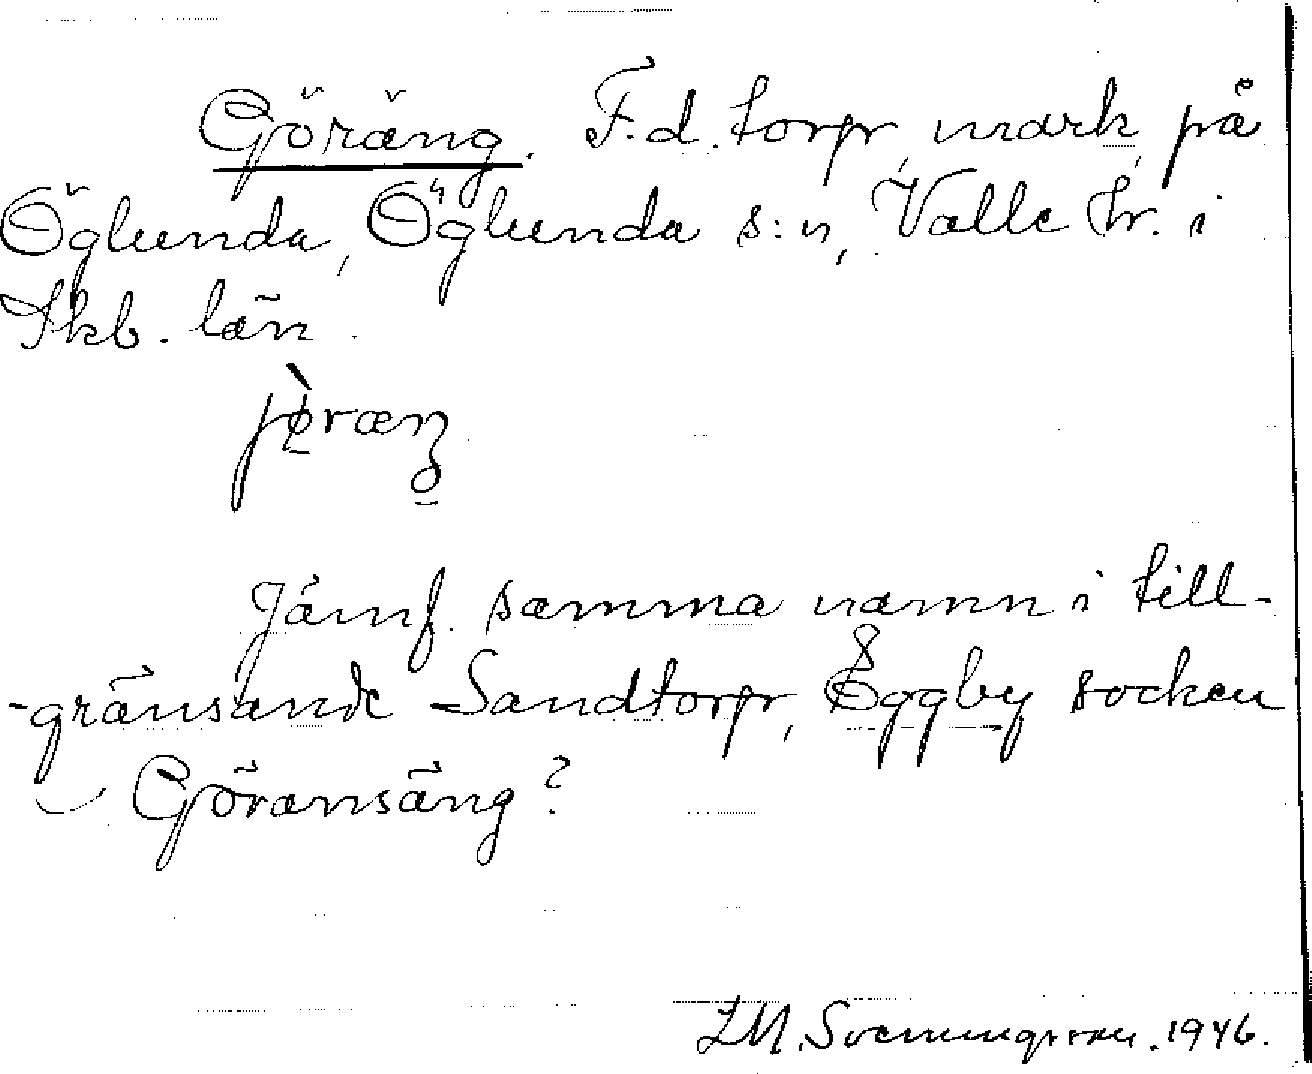 Göräng. F.d. torp, mark på
Öglunda, Öglunda s:n, Valle hr. i
Skb. län.
Jämf. samma namn i till-
-gränsande Sandtorp, Eggby socken
Göransäng?
Svenningsson. 1946.